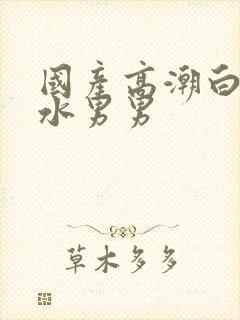 國產高潮白
水男男
草木多多